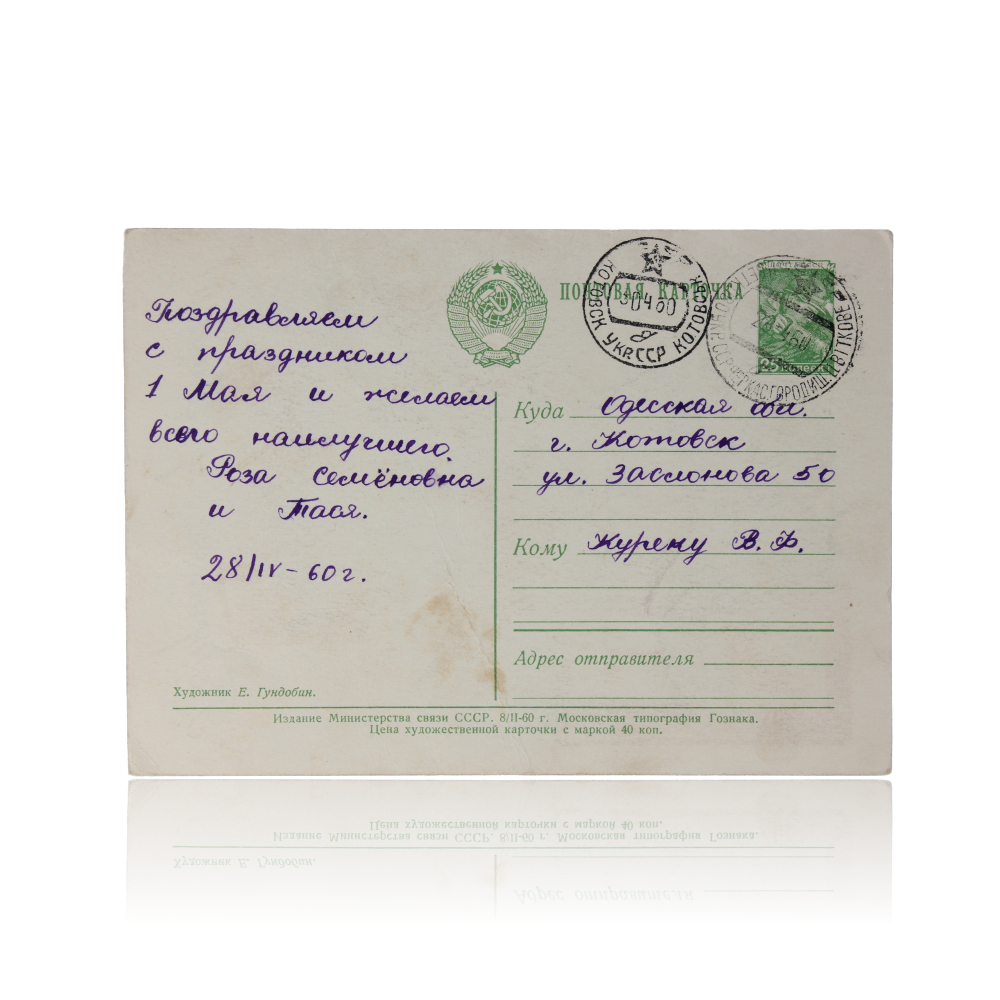 ПОЧТОВАЯ КАРТОЧКА
КОТОВСК УКР.ССР КОТОВСК
30 4 60
25 КОПЕЕК
Поздравляем
с праздником
1 Мая и желаем
всего наилучшего.
Роза Семёновна
и Тася.
28/IV-60 г.
Куда Одесская обл.
г. Котовск
ул. Заслонова 50
Кому Курену В. Ф.
Адрес отправителя
Художник Е. Гундобин.
Издание Министерства связи СССР. 8/II-60 г. Московская типография Гознака.
Цена художественной карточки с маркой 40 коп.